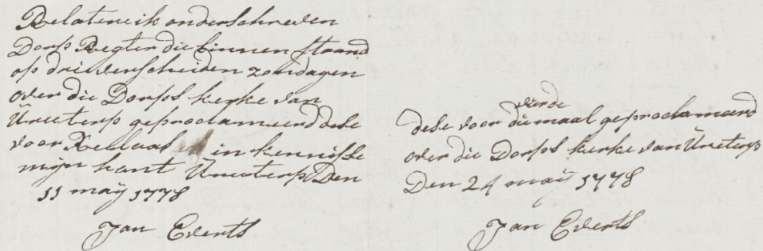 Relatere ik onderschreven
Dorps Regter die binnen staand
op drie verscheiden zondagen
over die Dorps kerke van
Ureterp geproclameerd dese
voor in kennisse
mijn hant Ureterp Den
11 maij 1778
Jan Everts
vierde
dese voor die maal geproclameerd
over die Dorps kerke van Ureterp
Den 24 maij 1778
Jan Everts